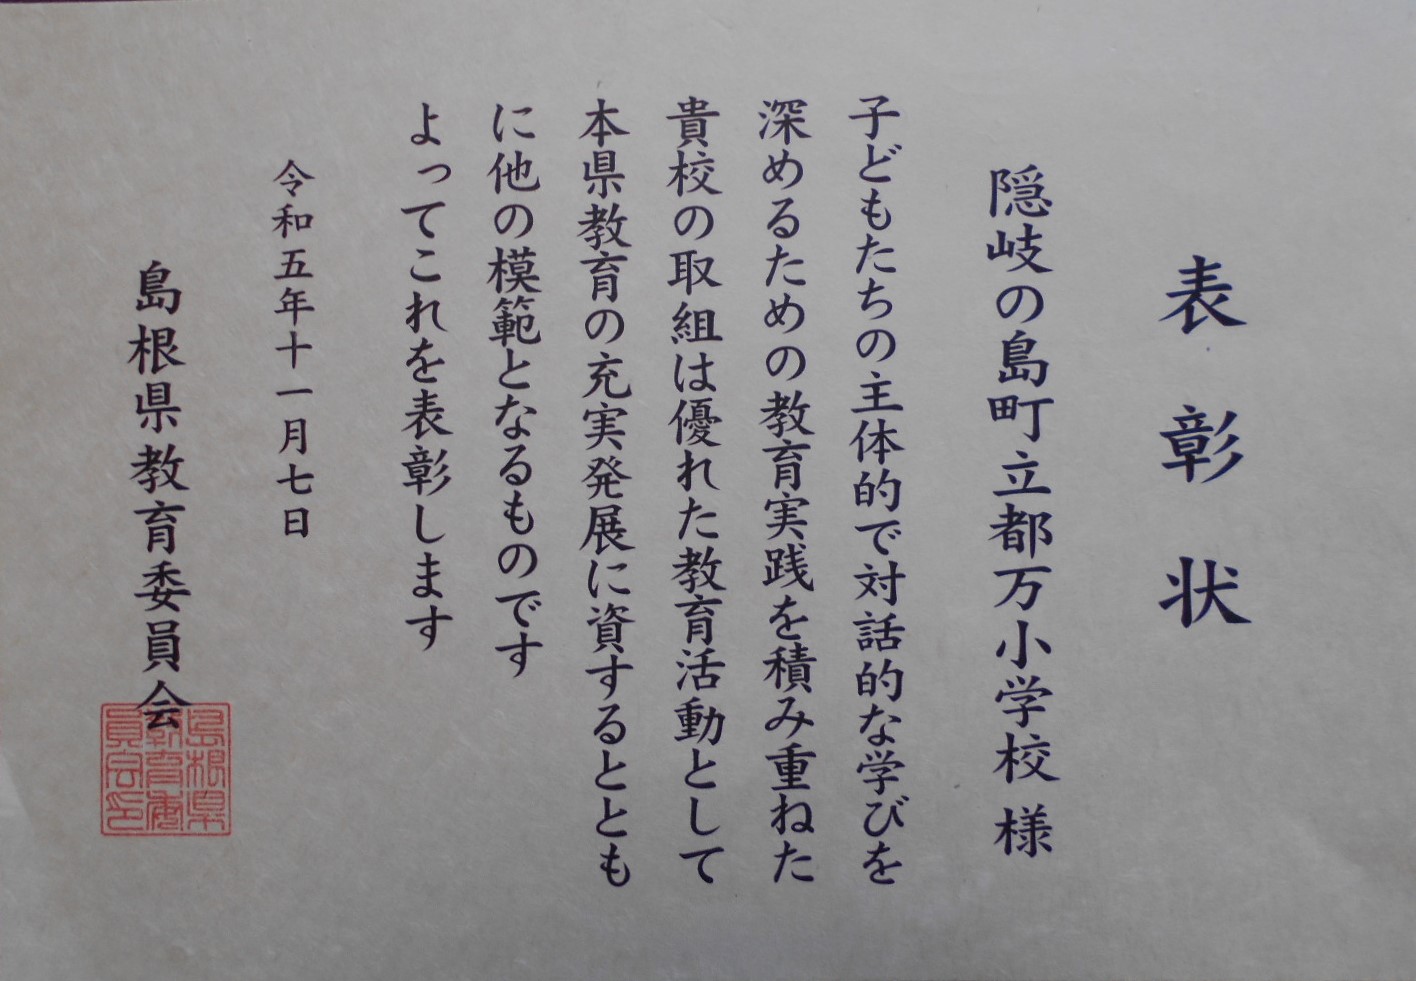 表彰状
隠岐の島町立都万小学校 様
子どもたちの主体的で対話的な学びを
深めるための教育実践を積み重ねた
貴校の取組は優れた教育活動として
本県教育の充実発展に資するととも
に他の模範となるものです
よってこれを表彰します
令和五年十一月七日
島根県教育委員会
島根県教育委員会印